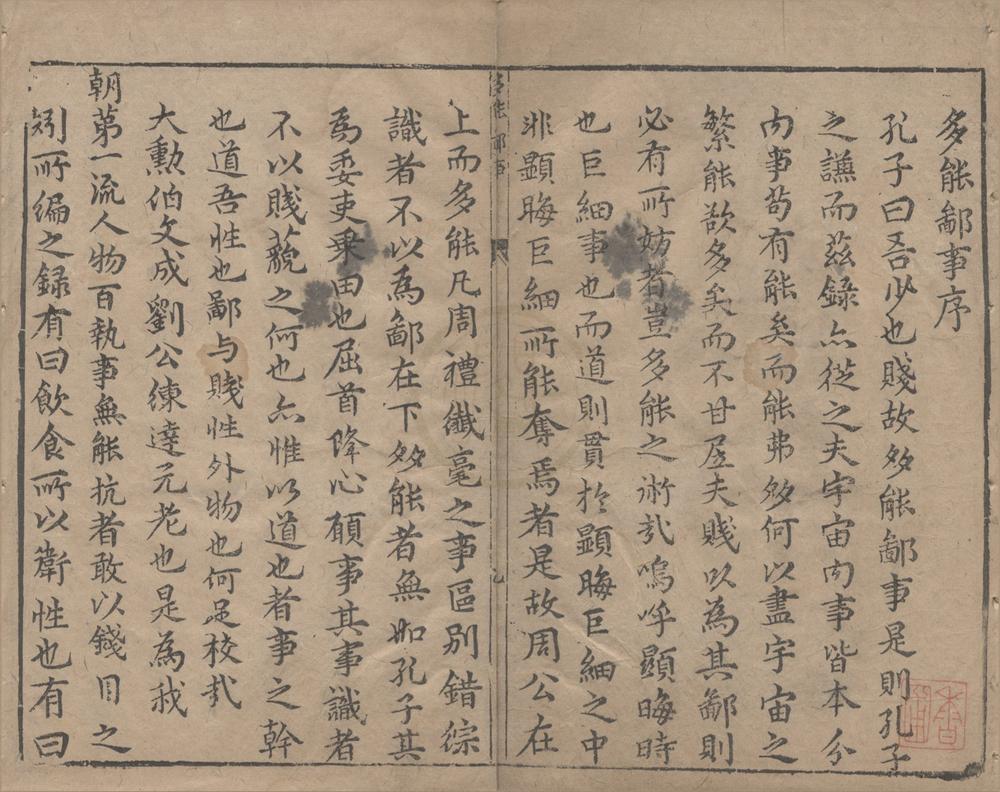 多能鄙事序
孔子曰吾少也賤故多能鄙事是則孔子
之謙而茲錄亦從之夫宇宙内事皆本分
内事苟有能矣而能弗多何以盡宇宙之
繁能欲多矣而不甘居夫賤以為其鄙則
必有所妨者豈多能之術㢤嗚呼顯晦時
也巨細事也而道則貫於顯晦巨細之中
非顯晦巨細所能奪焉者是故周公在
上而多能凡周禮纖毫之事區別錯綜
識者不以為鄙在下多能者無如孔子其
為委吏乗田也屈首降心願事其事識者
不以賤藐之何也亦惟以道也者事之幹
也道吾性也鄙与賤性外物也何足校㢤
大勳伯文成劉公練達元老也是為我
朝第一流人物百執事無能抗者敢以錢目之
矧所編之録有曰飲食所以衛性也有曰
多能鄙事